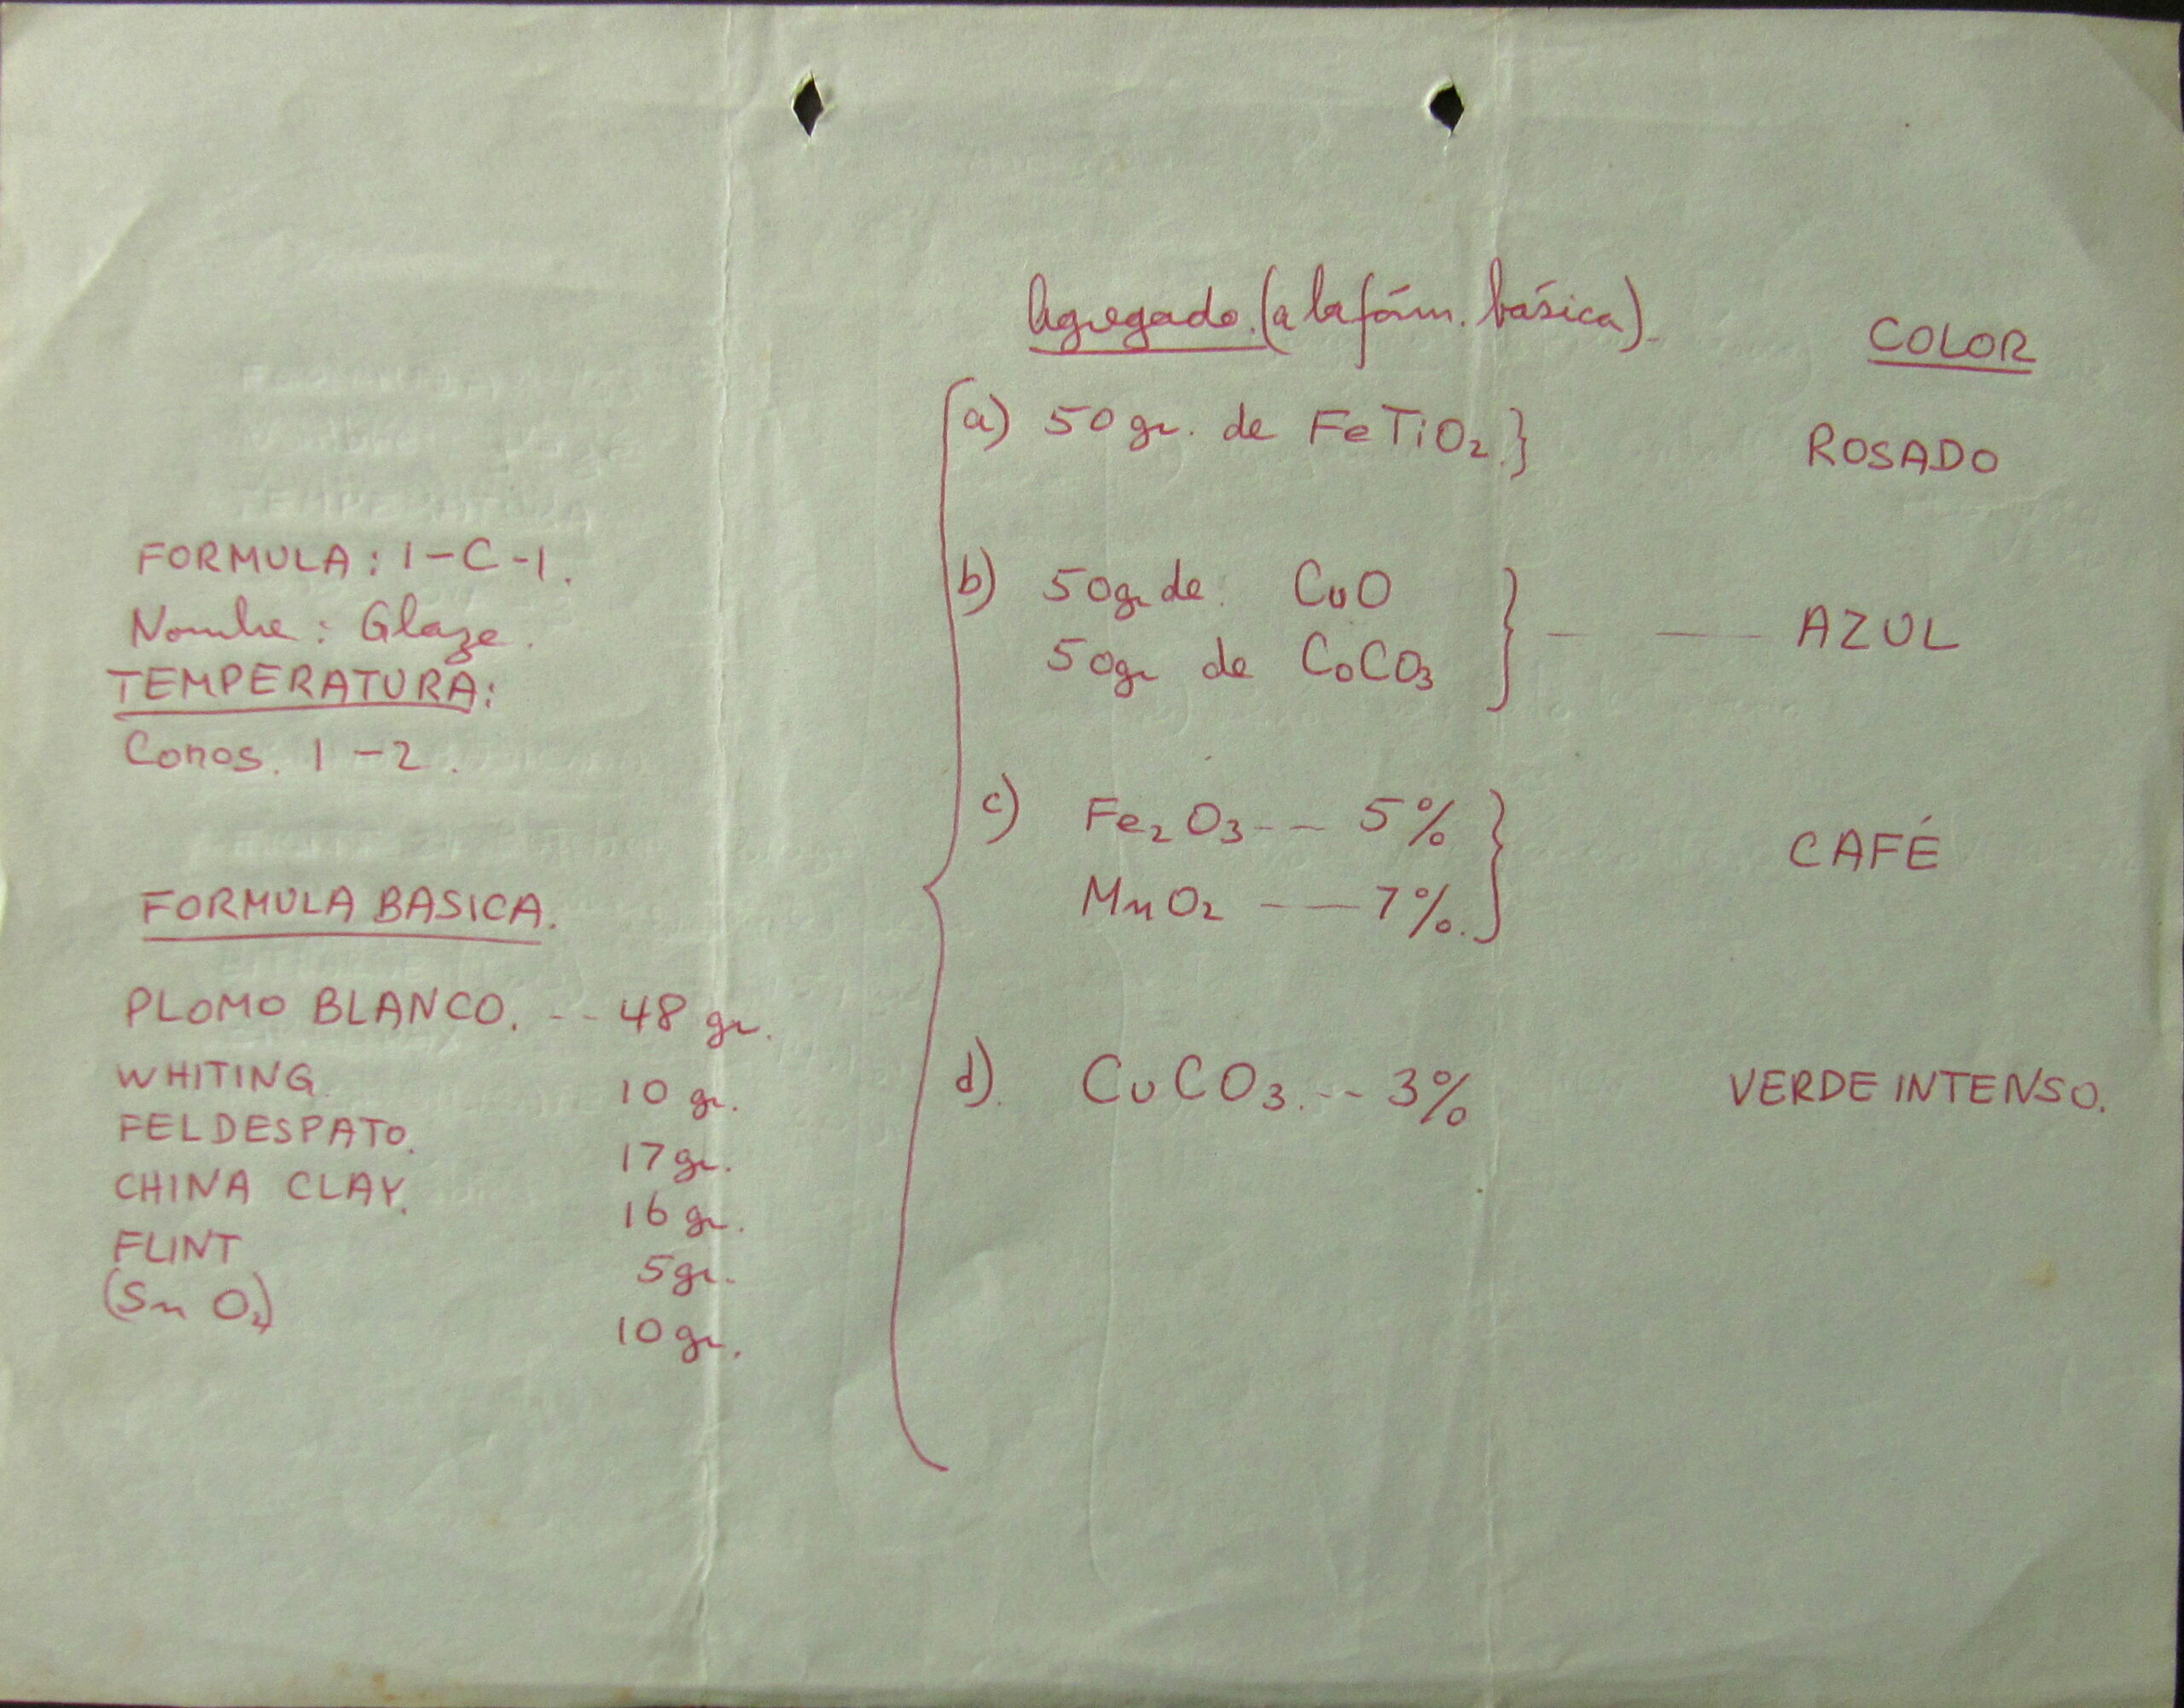 FORMULA: 1-C-1.
Nombre: Glaze.
TEMPERATURA:
Conos. 1-2.
FORMULA BASICA.
PLOMO BLANCO. -- 48 gr.
WHITING 10 gr.
FELDESPATO. 17 gr.
CHINA CLAY. 16 gr.
FLINT 5 gr.
(Sn O2) 10 gr.
Agregado. (a la fórm. básica). COLOR
a) 50 gr. de FeTiO2.} ROSADO
b) 50gr de CuO
50gr de CoCO3 } - — AZUL
c) Fe2O3 -- 5%
MnO2 -- 7%. } CAFÉ
d). CuCO3. -- 3% VERDE INTENSO.